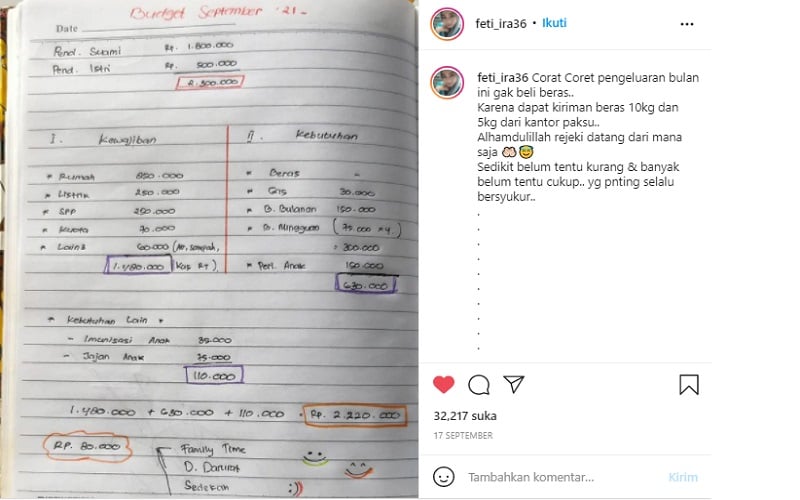 Budget September '21 -
Date
Pend. Suami Rp. 1.800.000
Pend. Istri Rp. 500.000
2.300.000
I. Kewajiban
* Rumah 850.000
* Listrik 250.000
* SPP 250.000
* Kuota 70.000
* Lain2 60.000 (Air, sampah,
1.480.000 Kas RT)
II. Kebutuhan
* Beras -
* Gas 30.000
* B. Bulanan 150.000
* B. Mingguan (75.000 x 4)
= 300.000
* Perl. Anak 150.000
630.000
* Kebutuhan Lain *
- Imunisasi Anak 35.000
- Jajan Anak 75.000
110.000
1.480.000 + 630.000 + 110.000 = Rp. 2.220.000
RP. 80.000
Family Time
D. Darurat
Sedekah :))
feti_ira36 • Ikuti
feti_ira36 Corat Coret pengeluaran bulan
ini gak beli beras..
Karena dapat kiriman beras 10kg dan
5kg dari kantor paksu..
Alhamdulillah rejeki datang dari mana
saja 🤲🏻😇
Sedikit belum tentu kurang & banyak
belum tentu cukup.. yg pnting selalu
bersyukur..
.
.
.
.
.
.
.
.
.
.
32,217 suka
17 SEPTEMBER
Tambahkan komentar...
Kirim